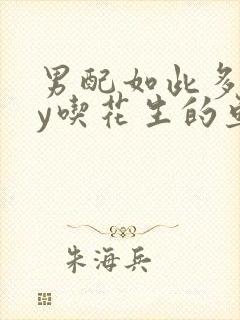 男配如此多
y喫花生的
朱海兵